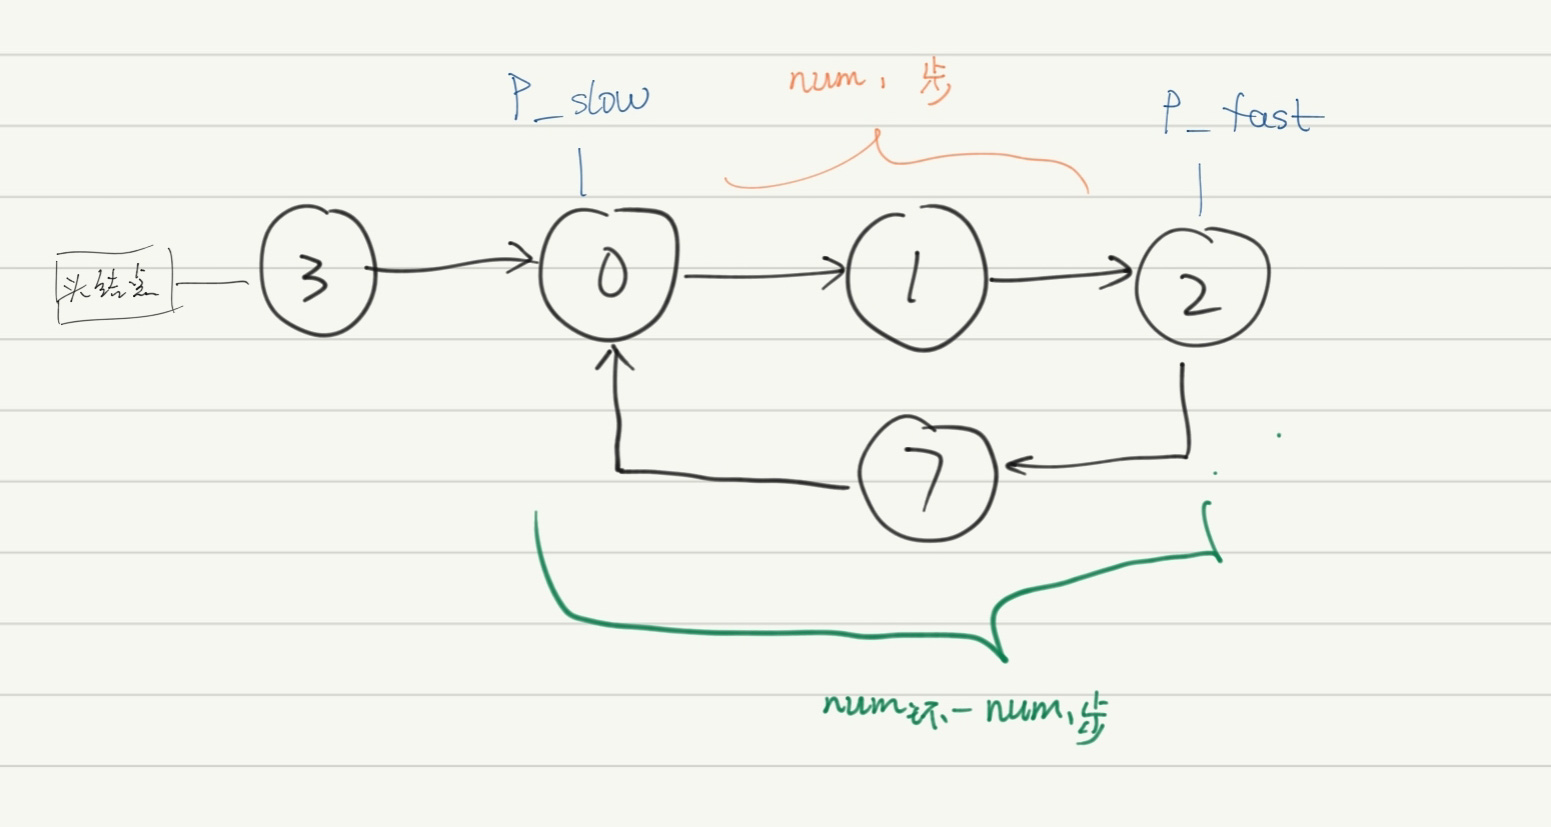 P_slow
num1步
P_fast
头结点
3
0
1
2
7
num环-num1步